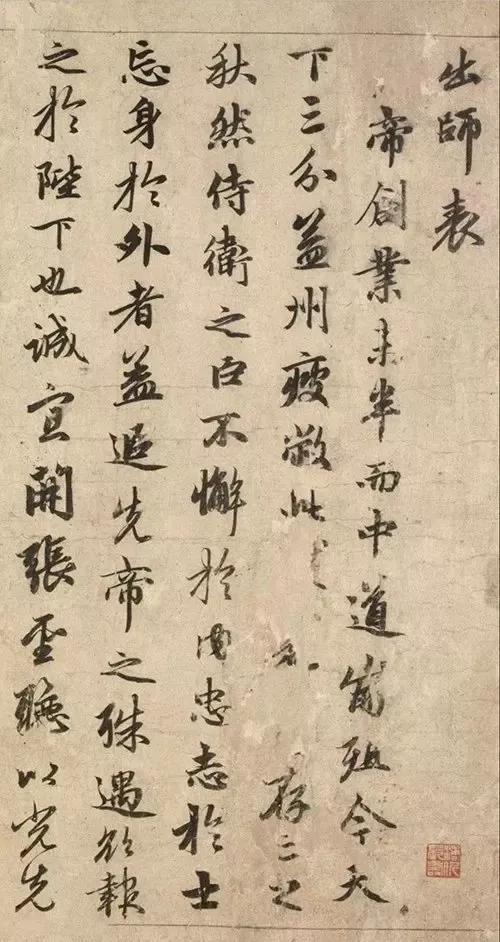 出師表
帝創業未半而中道崩殂今天
下三分益州疲敝此存亡之
秋然侍衛之臣不懈於内忠志於士
忘身於外者蓋追先帝之殊遇欲報
之於陛下也誠宜開張聖聽以光先